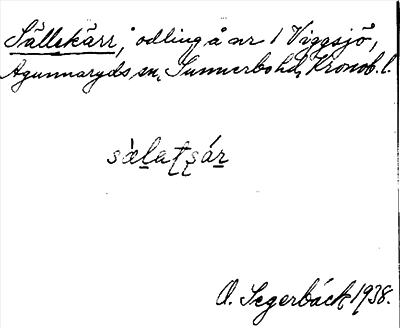 Sällekärr, odling å nr 1 Viggsjö,
Agunnaryds sn, Sunnerbo hd, Kronob. l.
sàlatʂár
O. Segerbäck 1938.